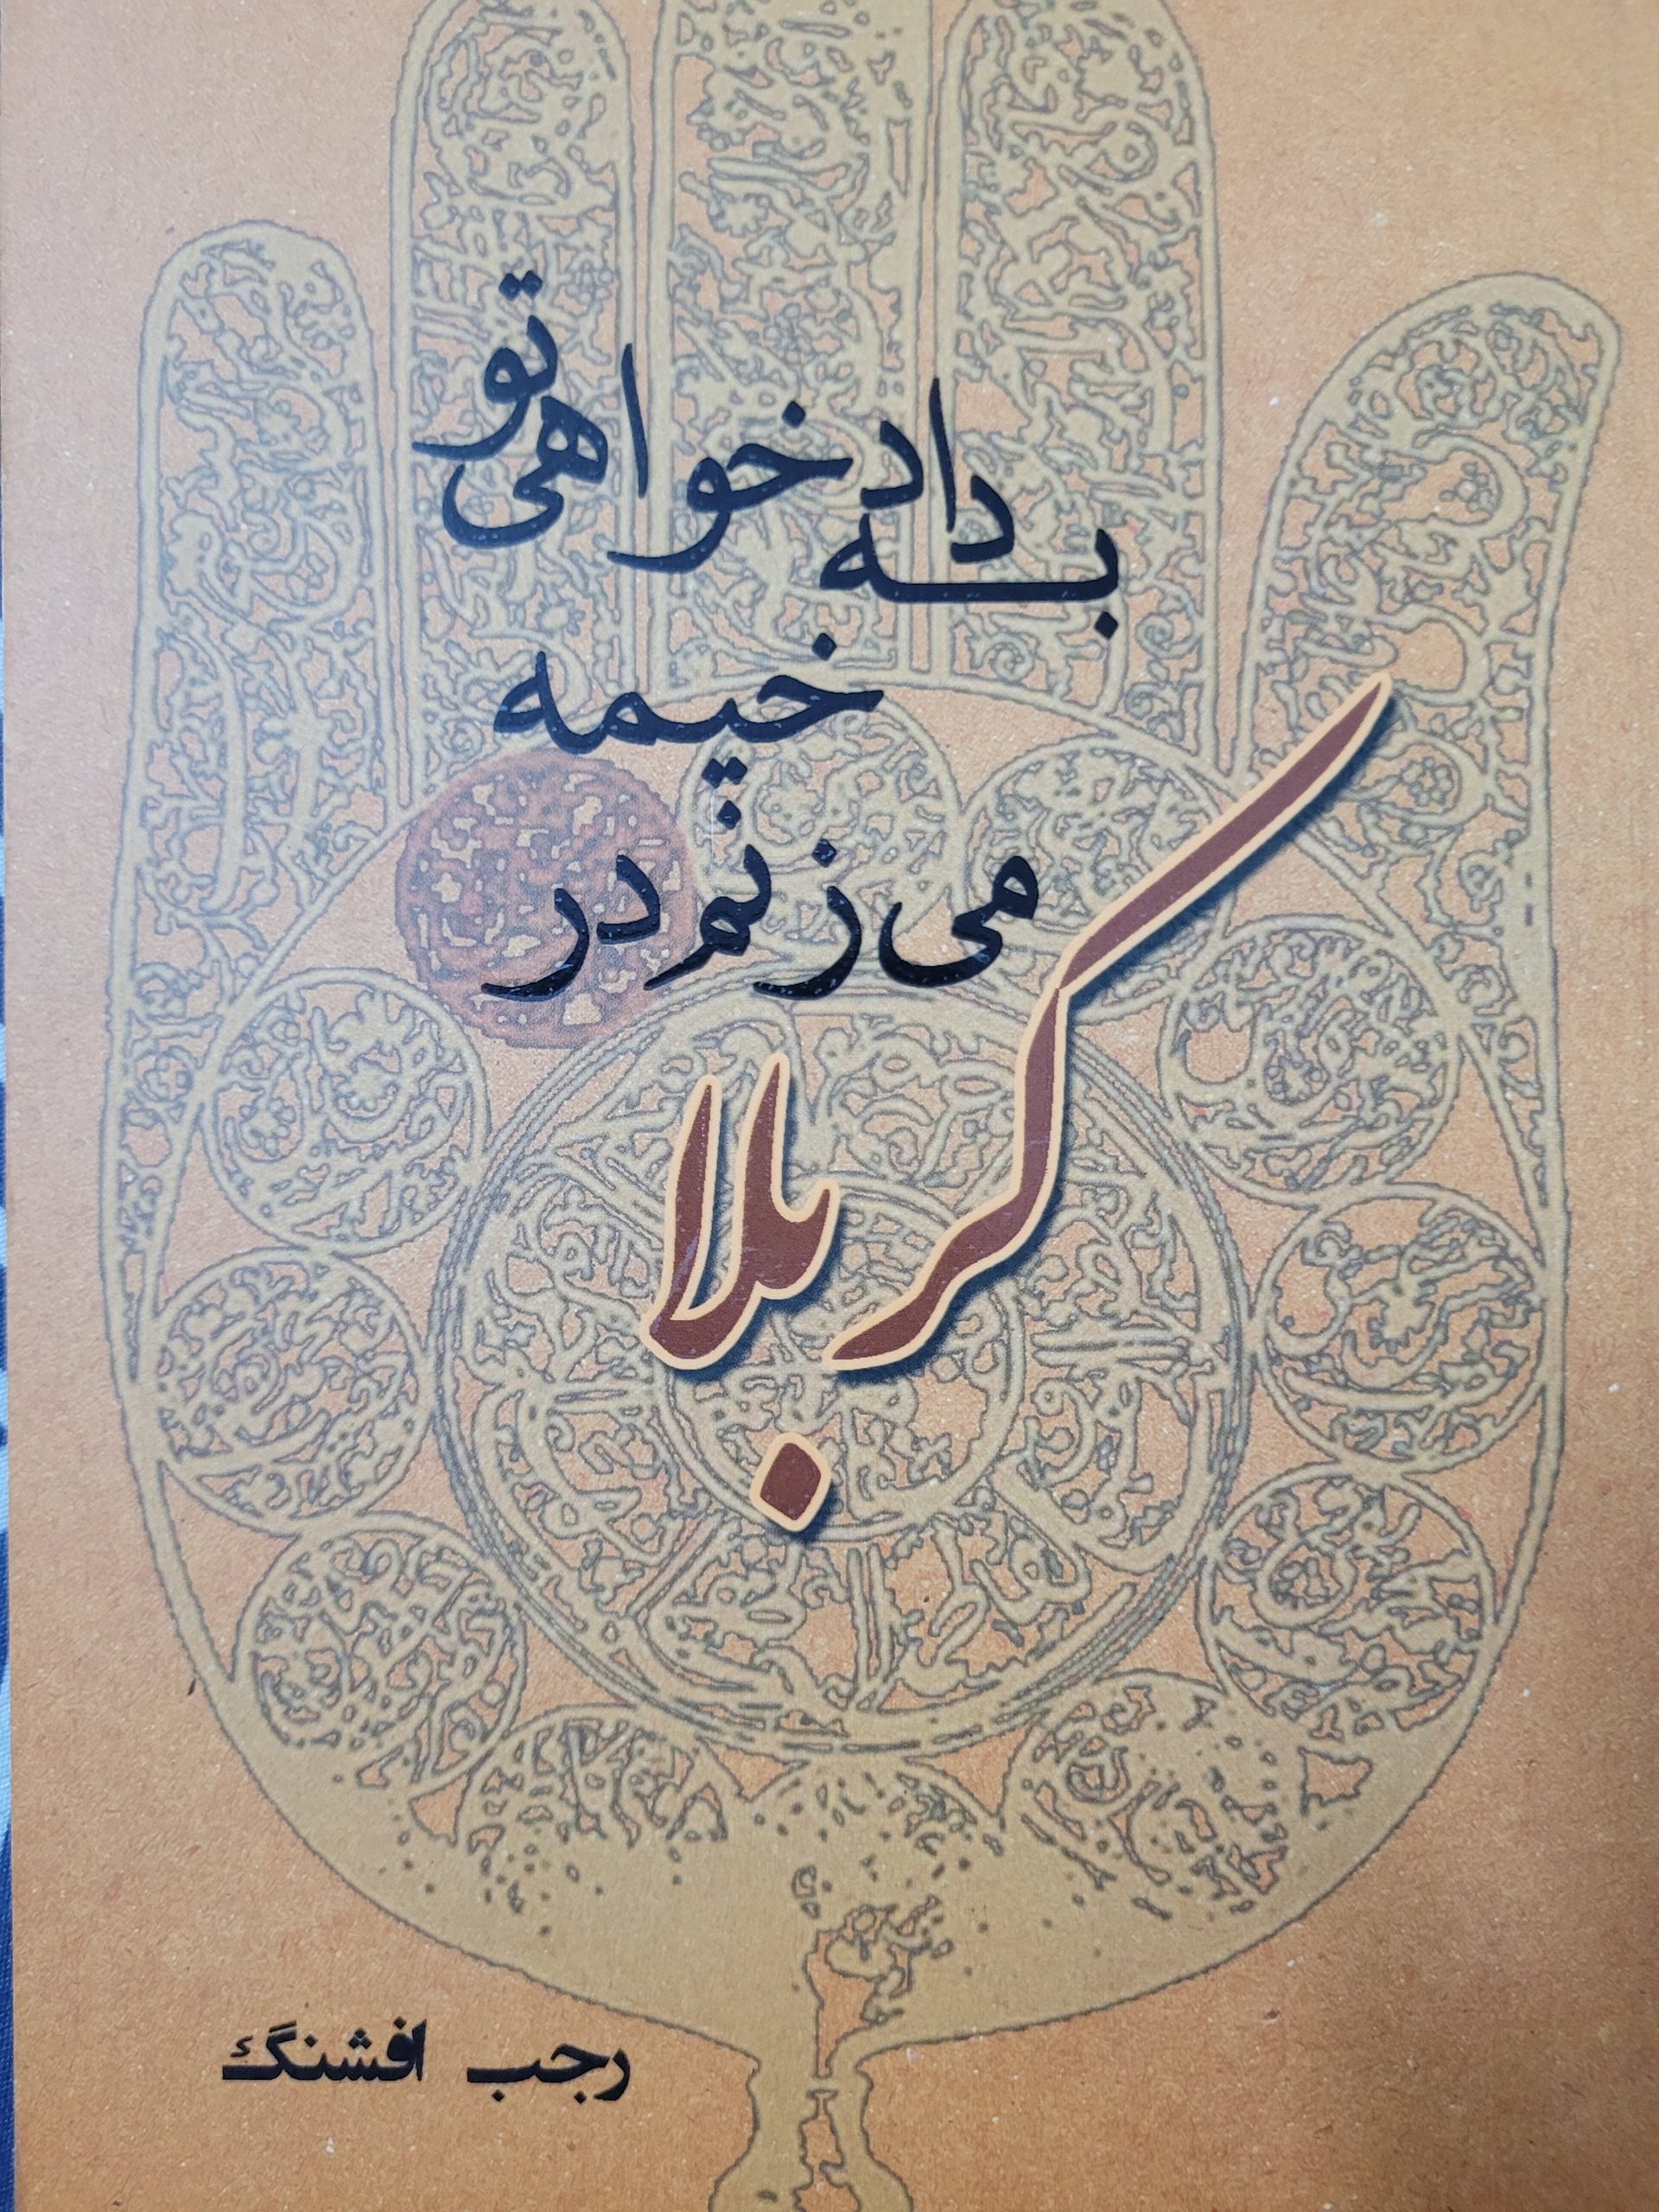 به دادخواهی تو
خیمه
می زنم در
کربلا
رجب افشنگ